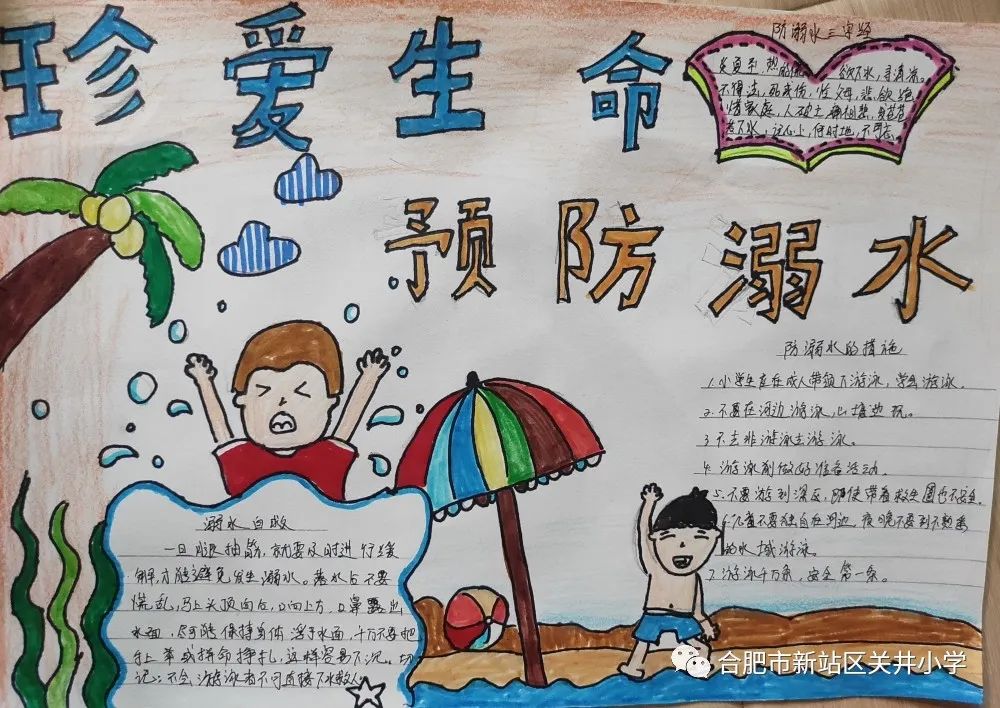 珍爱生命
防溺水三字经
炎夏季,热
欲下水,寻清凉。
不得法,
悲欲绝
情家庭,人
记心上,何时地,不可忘
预防溺水
防溺水的措施
1.小学生应在成人带领下游泳,学会游泳。
2.不要在河边游泳、
边玩。
3.不去非游泳去游泳。
4.游泳前做好准备活动。
5.不要游到深区,即使带着救生圈也不安全。
6.儿童不要独自在河边,夜晚不要到不熟悉
的水域游泳。
7.游泳千万条,安全第一条。
溺水自救
一旦腿抽筋,就要及时进行缓
解,才能避免发生溺水。落水后不要
慌乱,马上头顶向后,口向上方,口鼻露出
水面,尽可能保持身体浮于水面,千万不要把
手上举或拼命挣扎,这样容易下沉。切
记:不会游泳者不可直接下水救人
合肥市新站区关井小学